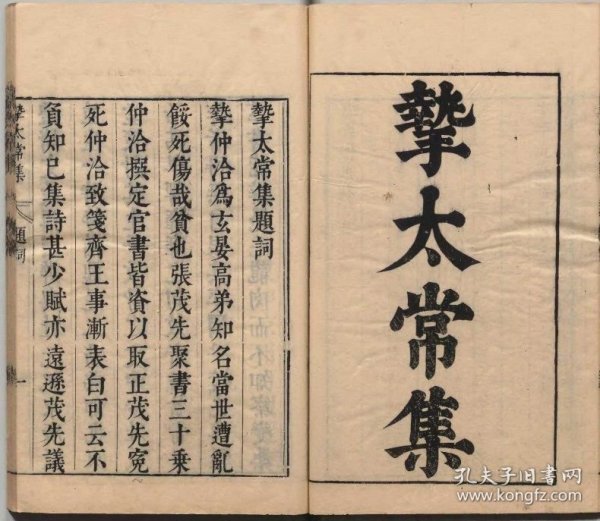 摯太常集
摯太常集題詞
摯仲洽爲玄晏高弟知名當世遭亂
餒死傷哉貧也張茂先聚書三十乗
仲洽撰定官書皆資以取正茂先寃
死仲洽致箋齊王事漸表白可云不
負知己集詩甚少賦亦遠遜茂先議
摯太常集
題詞
一
孔夫子旧書网
www.kongfz.com